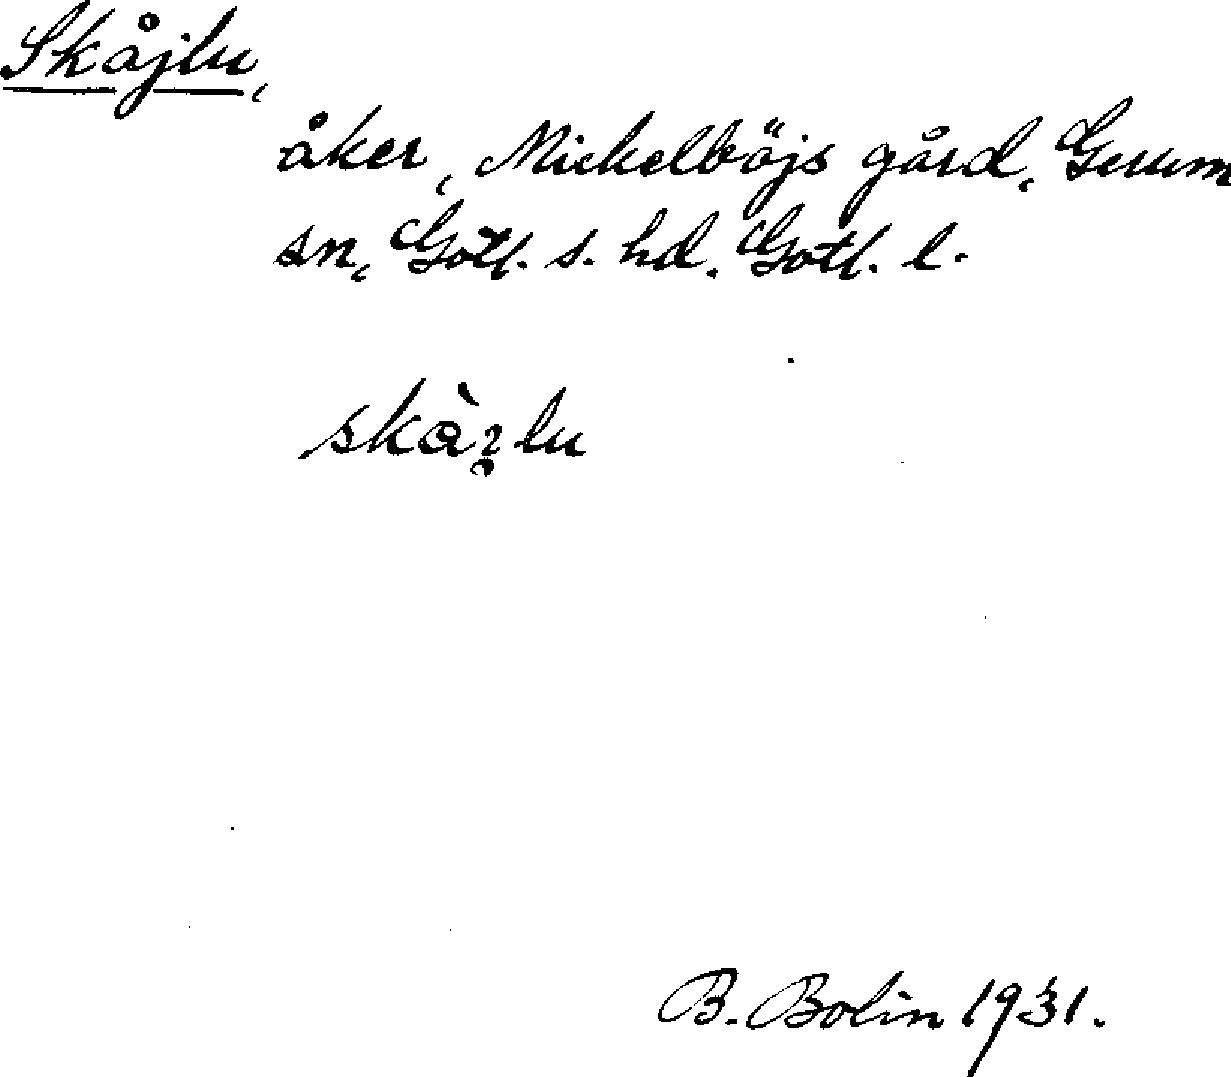 Skåjlu,
åker, Mickelböjs gård, Gerum
sn, Gotl. s. hd. Gotl. l.
B. Bolin 1931.